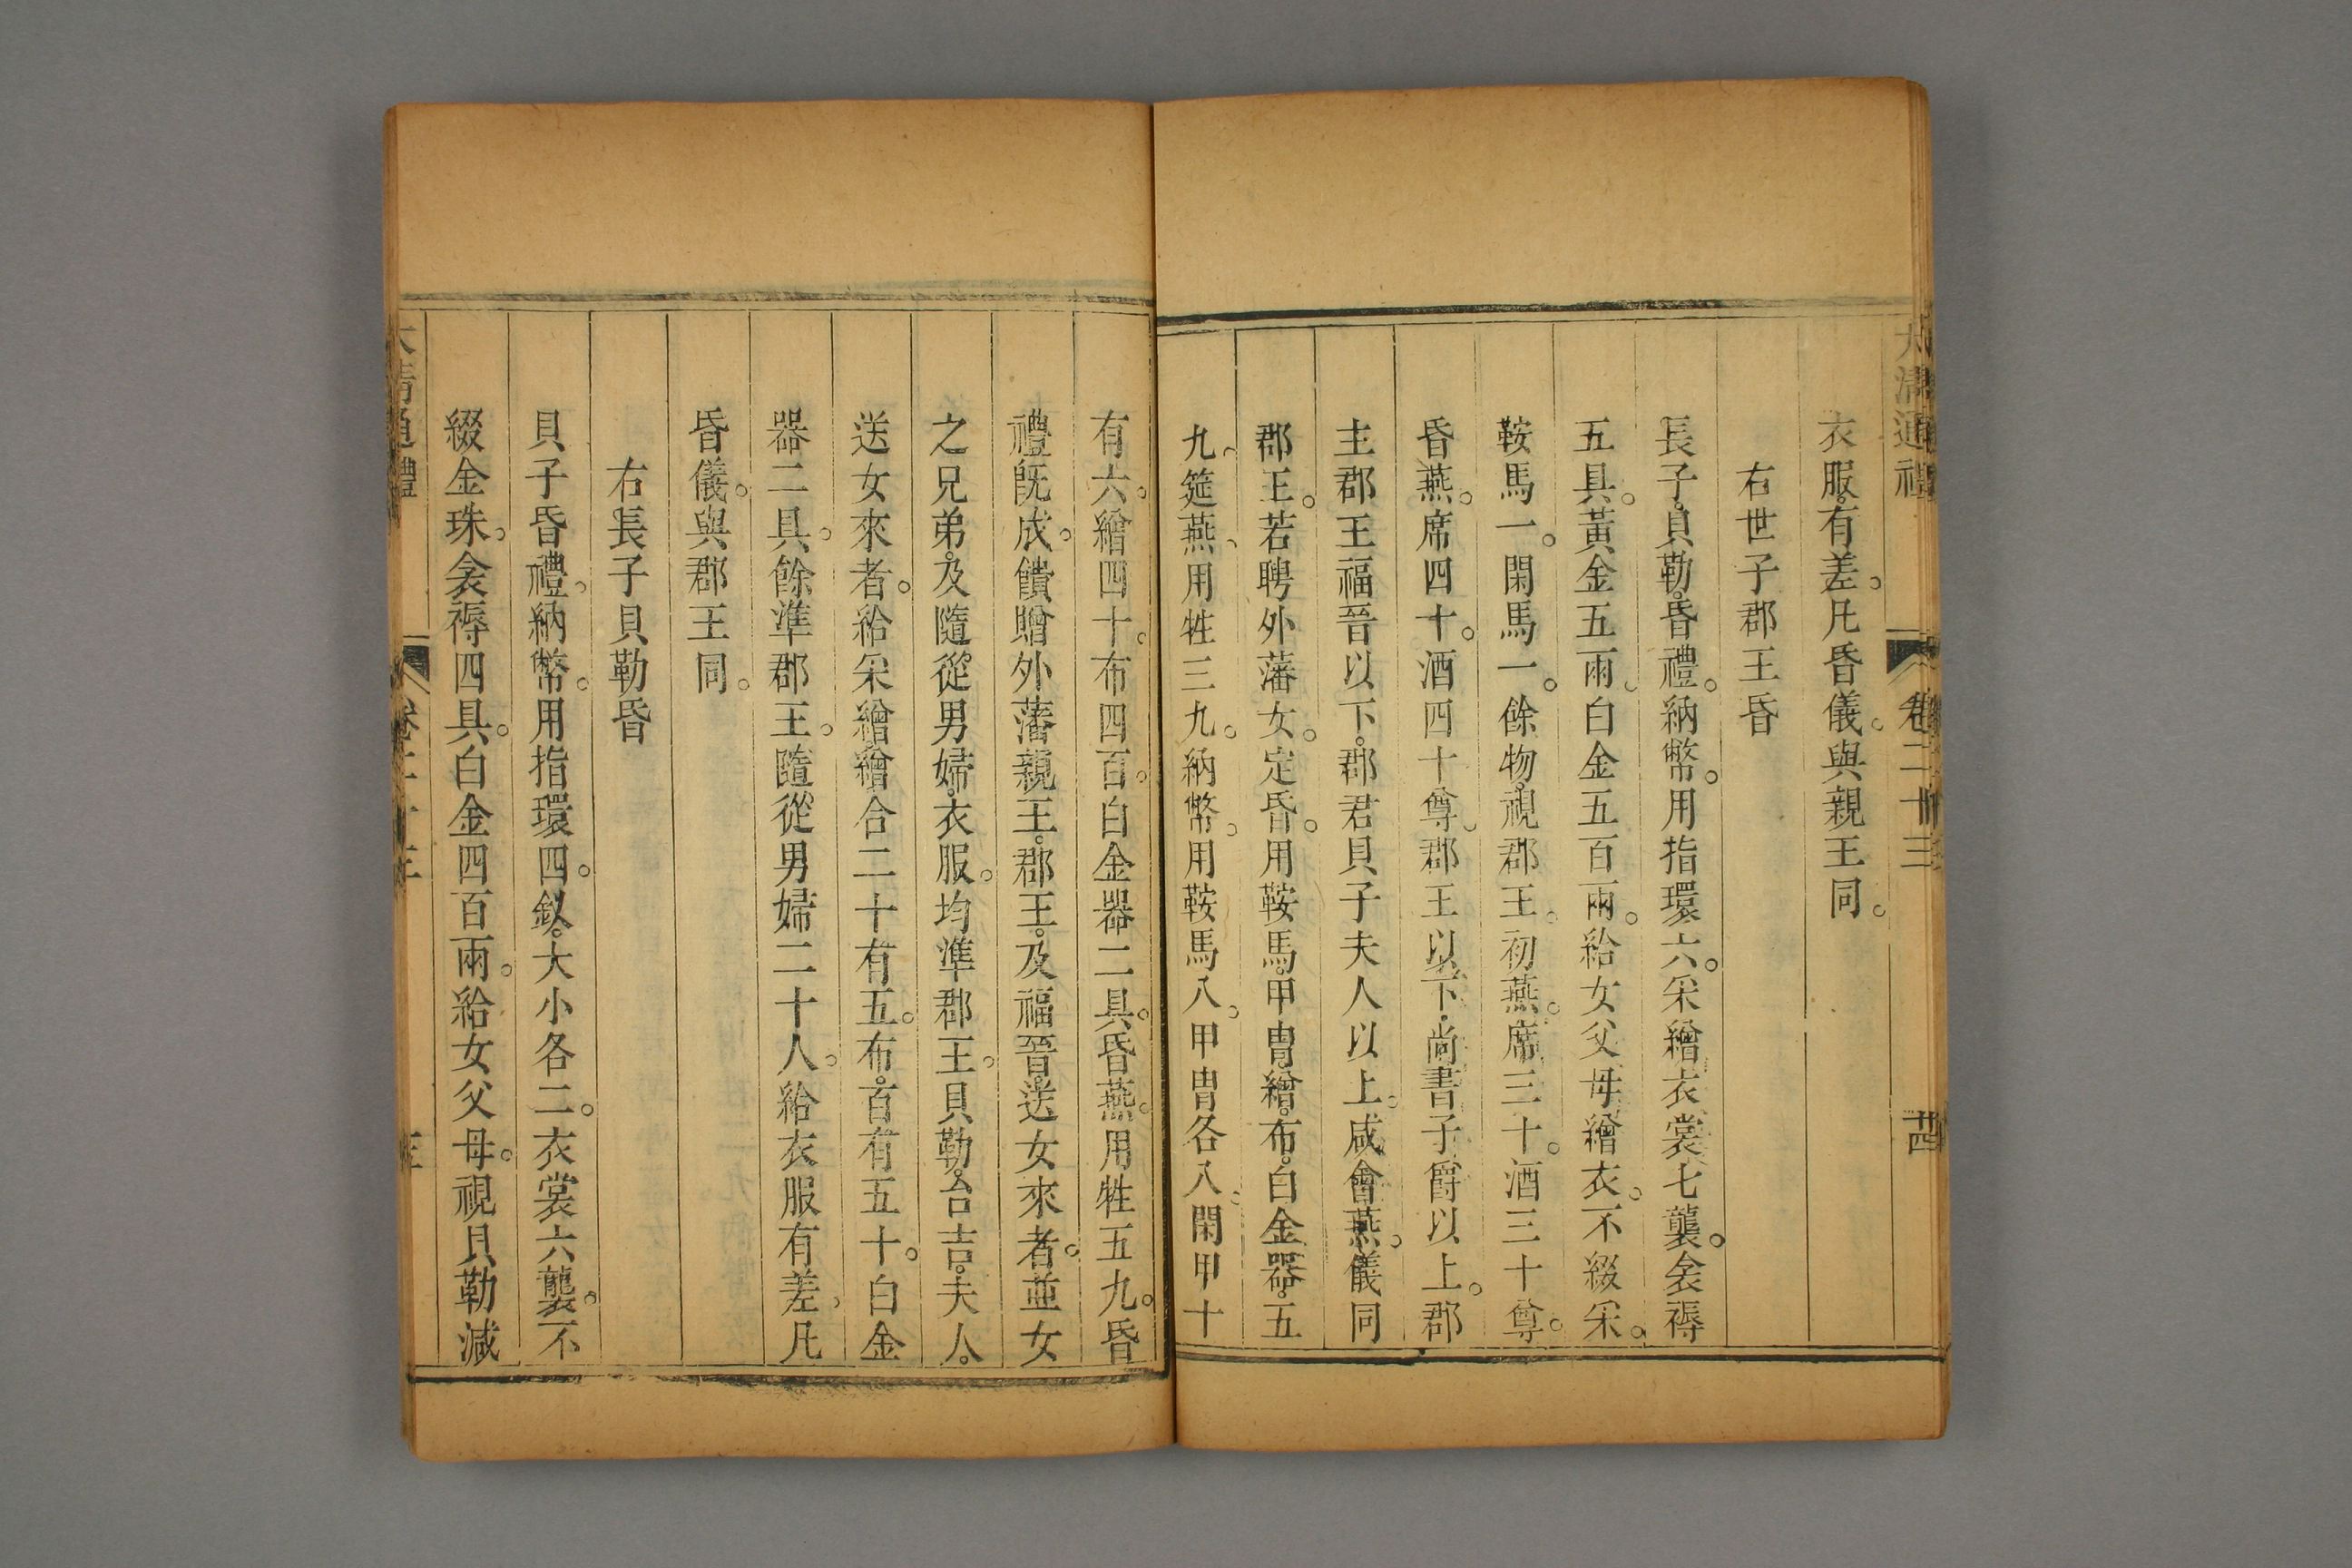 大清通禮 卷二十三 十四
衣服有差。凡昏儀。與親王同。
右世子郡王昏
長子。貝勒。昏禮。納幣。用指環六。采繒衣裳七襲。衾褥
五具。黃金五兩。白金五百兩。給女父母繒衣。不綴采。
鞍馬一。閑馬一。餘物。視郡王。初燕。席三十。酒三十尊。
昏燕。席四十。酒四十尊。郡王以下。尚書子爵以上。郡
主郡王福晉以下。郡君貝子夫人以上。咸會燕。儀同
郡王。若聘外藩女。定昏。用鞍馬。甲冑。繒。布。白金器。五
九。筵燕。用牲三九。納幣。用鞍馬八。甲冑各八。閑甲十
有六。繒四十。布四百。白金器二具。昏燕。用牲五九。昏
禮旣成。饋贈外藩親王。郡王。及福晉。送女來者。並女
之兄弟。及隨從男婦。衣服。均準郡王。貝勒。台吉。夫人。
送女來者。給采繒繒合二十有五。布。百有五十。白金
器二具。餘準郡王。隨從男婦二十人。給衣服有差。凡
昏儀。與郡王同。
右長子貝勒昏
貝子昏禮。納幣。用指環四。釵。大小各二。衣裳六襲。不
綴金珠。衾褥四具。白金四百兩。給女父母。視貝勒減
大清通禮 卷二十三